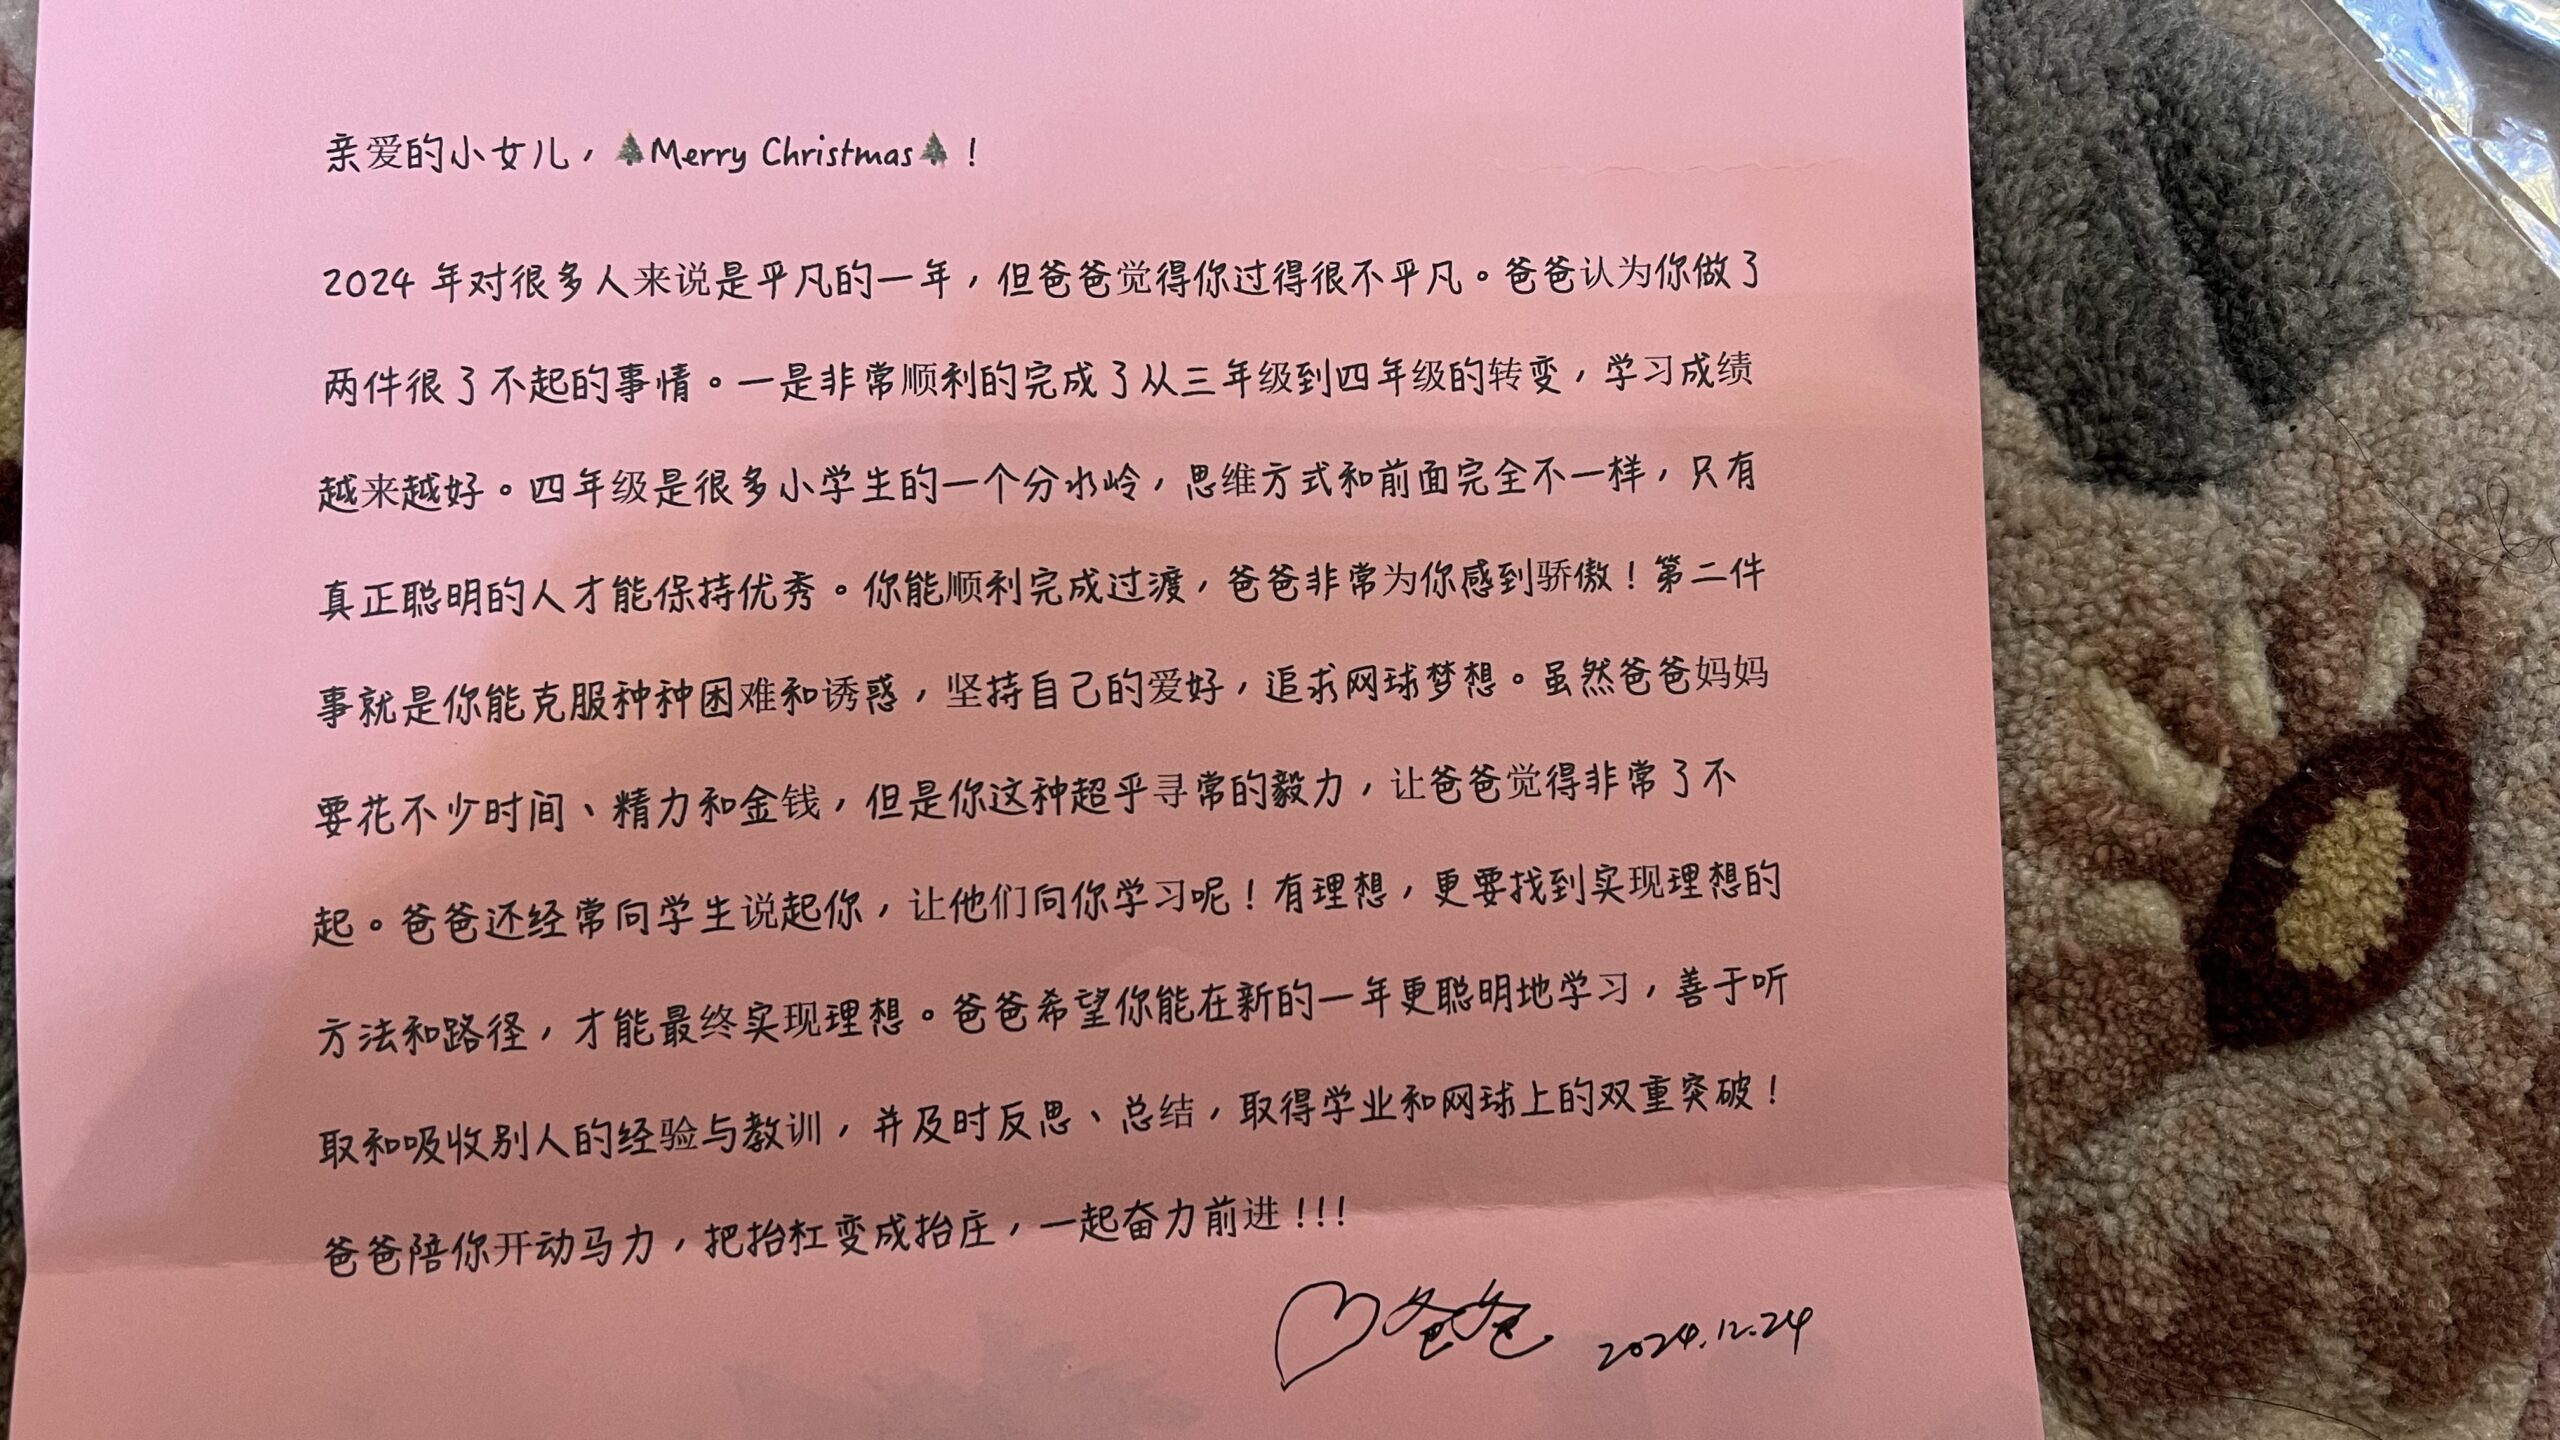 亲爱的小女儿，🎄Merry Christmas🎄！
2024 年对很多人来说是平凡的一年，但爸爸觉得你过得很不平凡。爸爸认为你做了
两件很了不起的事情。一是非常顺利的完成了从三年级到四年级的转变，学习成绩
越来越好。四年级是很多小学生的一个分水岭，思维方式和前面完全不一样，只有
真正聪明的人才能保持优秀。你能顺利完成过渡，爸爸非常为你感到骄傲！第二件
事就是你能克服种种困难和诱惑，坚持自己的爱好，追求网球梦想。虽然爸爸妈妈
要花不少时间、精力和金钱，但是你这种超乎寻常的毅力，让爸爸觉得非常了不
起。爸爸还经常向学生说起你，让他们向你学习呢！有理想，更要找到实现理想的
方法和路径，才能最终实现理想。爸爸希望你能在新的一年更聪明地学习，善于听
取和吸收别人的经验与教训，并及时反思、总结，取得学业和网球上的双重突破！
爸爸陪你开动马力，把抬杠变成抬庄，一起奋力前进！！！
♡爸爸 2024.12.24